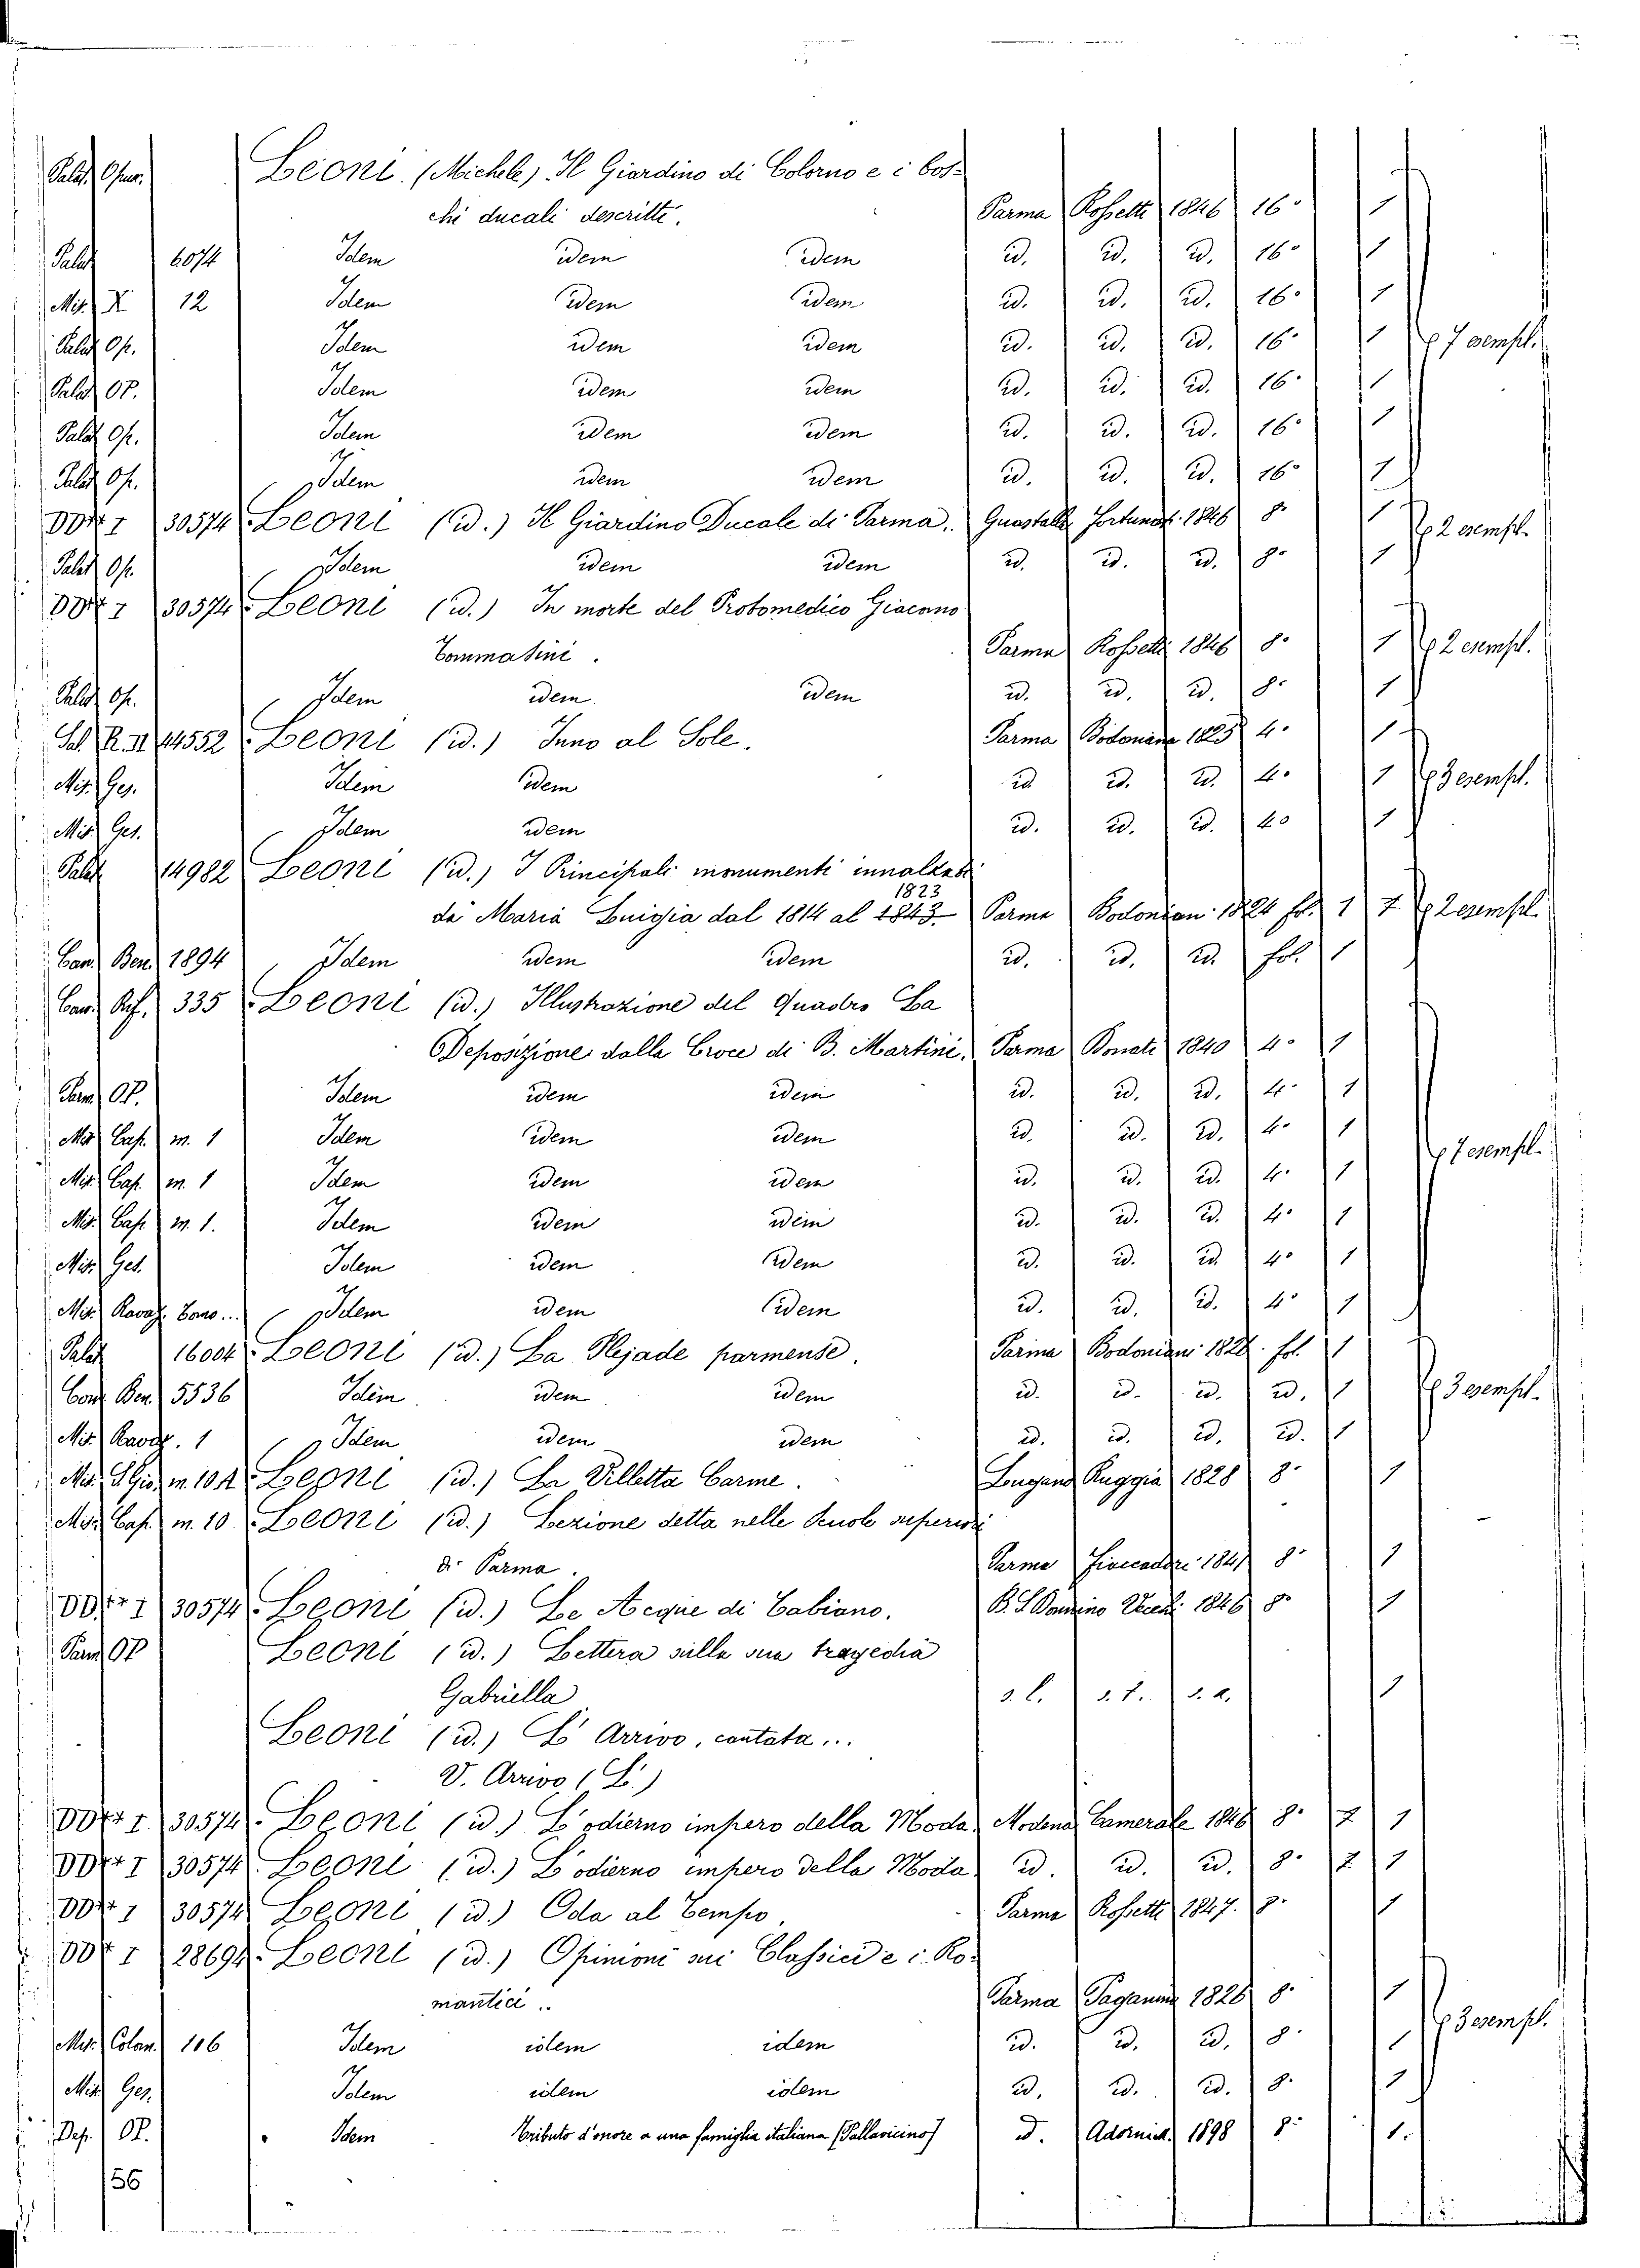 Palat. Opusc. Leoni (Michele) Il Giardino di Colorno e i bos-
chi ducali descritti. Parma Rossetti 1846 16° 1
Palat 6074 Idem idem idem id. id. id. 16° 1
Mis. X 12 Idem idem idem id. id. id. 16° 1
Palat Op. Idem idem idem id. id. id. 16° 1 7 esempl.
Palat OP. Idem idem idem id. id. id. 16° 1
Palat Op. Idem idem idem id. id. id. 16° 1
Palat Op. Idem idem idem id. id. id. 16° 1
I 30574 Leoni (id.) Il Giardino Ducale di Parma. Guastalla Fortunat. 1846 8° 1 2 esempl.
Palat Op. Idem idem idem id. id. id. 8° 1
I 30574 Leoni (id.) In morte del Protomedico Giacomo
Tommasini. Parma Rossetti 1846 8° 1 2 esempl.
Palat Op. Idem idem idem id. id. id. 8° 1
Sal. R. II 14552 Leoni (id.) Inno al Sole. Parma Bodoniana 1825 4° 1
Mis. Ges. Idem idem id. id. id. 4° 1 3 esempl.
Mis. Ges. Idem idem id. id. id. 4° 1
Palat 14982 Leoni (id.) I Principali monumenti innalzati
1823
da Maria Luigia dal 1814 al 1843. Parma Bodonian. 1824 fol. 1 2 esempl.
Can. Ben. 1894 Idem idem idem id. id. id. fol. 1
335 Leoni (id.) Illustrazione del Quadro La
Deposizione dalla Croce di B. Martini. Parma Donati 1840 4° 1
Parm. OP. Idem idem idem id. id. id. 4° 1
Mis. Cap. m. 1 Idem idem idem id. id. id. 4° 1 7 esempl.
Mis. Cap. m. 1 Idem idem idem id. id. id. 4° 1
Mis. Cap. m. 1. Idem idem idem id. id. id. 4° 1
Mis. Ges. Idem idem idem id. id. id. 4° 1
Mis. Ravaz. Idem idem idem id. id. id. 4° 1
Palat 16004 Leoni (id.) La Plejade parmense. Parma Bodonian. fol. 1
Ben. 5536 Idem idem idem id. id. id. id. 1 3 esempl.
Mis. Ravaz. 1 Idem idem idem id. id. id. id. 1
Leoni (id.) La Villetta Carme. Lugano Ruggia 1828 8° 1
Mis. Cap. m. 10 Leoni (id.) Lezione detta nelle Scuole superiori
di Parma. Parma Fiaccadori 1841 8° 1
I 30574 Leoni (id.) Le Acque di Tabiano. B. S. Donnino Vecchi 1846 8° 1
Parm OP Leoni (id.) Lettera sulla sua tragedia
Gabriella s. l. s. t. s. a. 1
Leoni (id.) L' Arrivo, cantata...
V. Arrivo (L'.)
I 30574 Leoni (id.) L'odierno impero della Moda. Modena Camerale 1846 8° 2 1
I 30574 Leoni (id.) L'odierno impero della Moda id. id. id. 8° 2 1
I 30574 Leoni (id.) Oda al Tempo, Parma Rossetti 1847. 8° 1
I 28694 Leoni (id.) Opinioni sui Classici e i Ro-
mantici.. Parma Paganino 1826 8° 1
Mis. Colom. 106 Idem idem idem id. id. id. 8° 1 3 esempl.
Mis. Ges. Idem idem idem id. id. id. 8° 1
Dep. OP. Idem Tributo d'onore a una famiglia italiana (Pallavicino) id. Adorni 1898 8° 1.
56